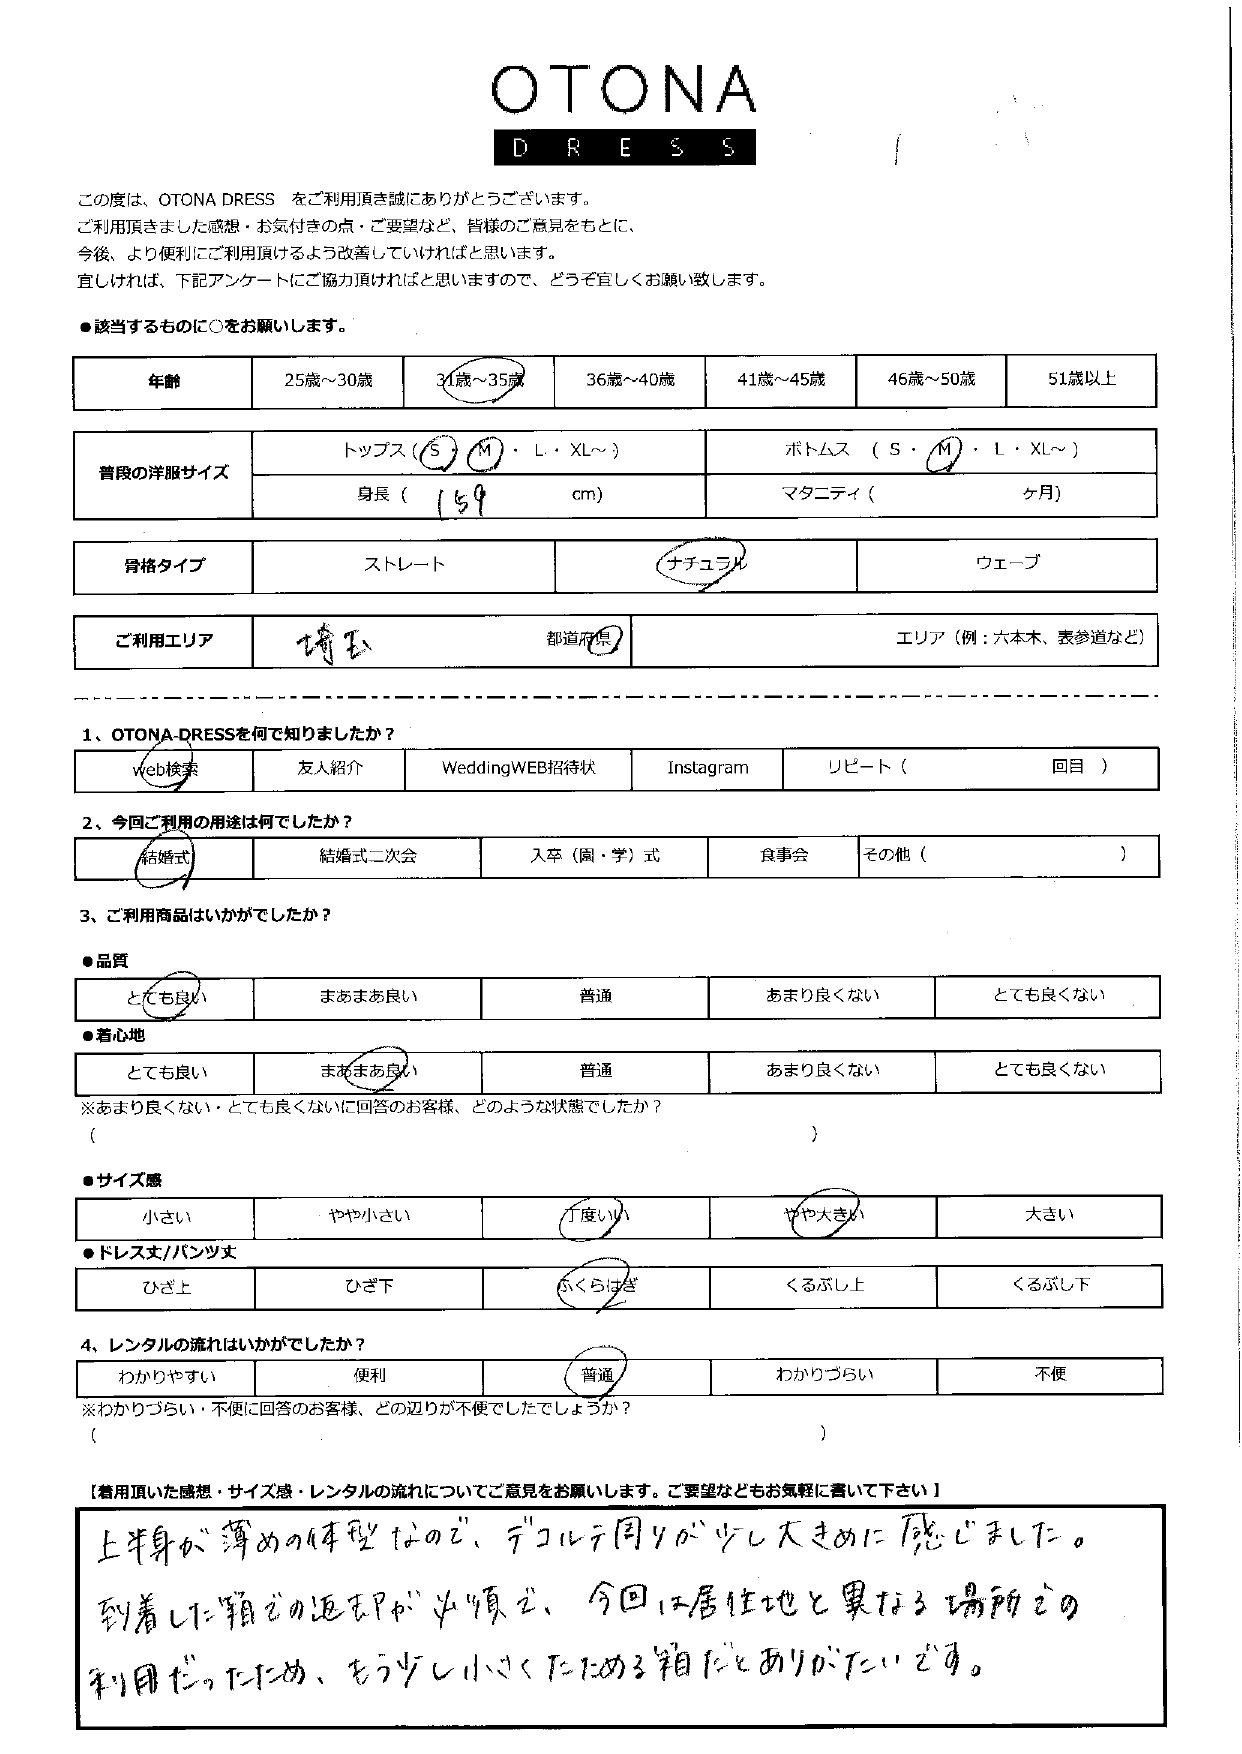 OTONA
DRESS
この度は、OTONA DRESS をご利用頂き誠にありがとうございます。
ご利用頂きました感想・お気付きの点・ご要望など、皆様のご意見をもとに、
今後、より便利にご利用頂けるよう改善していければと思います。
宜しければ、下記アンケートにご協力頂ければと思いますので、どうぞ宜しくお願い致します。
●該当するものに○をお願いします。
年齢 25歳～30歳 31歳～35歳 36歳～40歳 41歳～45歳 46歳～50歳 51歳以上
普段の洋服サイズ トップス（S・M・L・XL～） ボトムス （S・M・L・XL～）
身長（ 159 cm） マタニティ（ ケ月）
骨格タイプ ストレート ナチュラル ウェーブ
ご利用エリア 埼玉 都道府県 エリア（例：六本木、表参道など）
1、OTONA-DRESSを何で知りましたか？
web検索 友人紹介 WeddingWEB招待状 Instagram リピート（ 回目 ）
2、今回ご利用の用途は何でしたか？
結婚式 結婚式二次会 入卒（園・学）式 食事会 その他（ ）
3、ご利用商品はいかがでしたか？
●品質
とても良い まあまあ良い 普通 あまり良くない とても良くない
●着心地
とても良い まあまあ良い 普通 あまり良くない とても良くない
※あまり良くない・とても良くないに回答のお客様、どのような状態でしたか？
（ ）
●サイズ感
小さい やや小さい 丁度いい やや大きい 大きい
●ドレス丈/パンツ丈
ひざ上 ひざ下 ふくらはぎ くるぶし上 くるぶし下
4、レンタルの流れはいかがでしたか？
わかりやすい 便利 普通 わかりづらい 不便
※わかりづらい・不便に回答のお客様、どの辺りが不便でしたでしょうか？
（ ）
【着用頂いた感想・サイズ感・レンタルの流れについてご意見をお願いします。ご要望などもお気軽に書いて下さい】
上半身が薄めの体型なので、デコルテ周りが少し大きめに感じました。
到着した箱での返却が必須で、今回は居住地と異なる場所での
利用だったため、もう少し小さくたためる箱だとありがたいです。